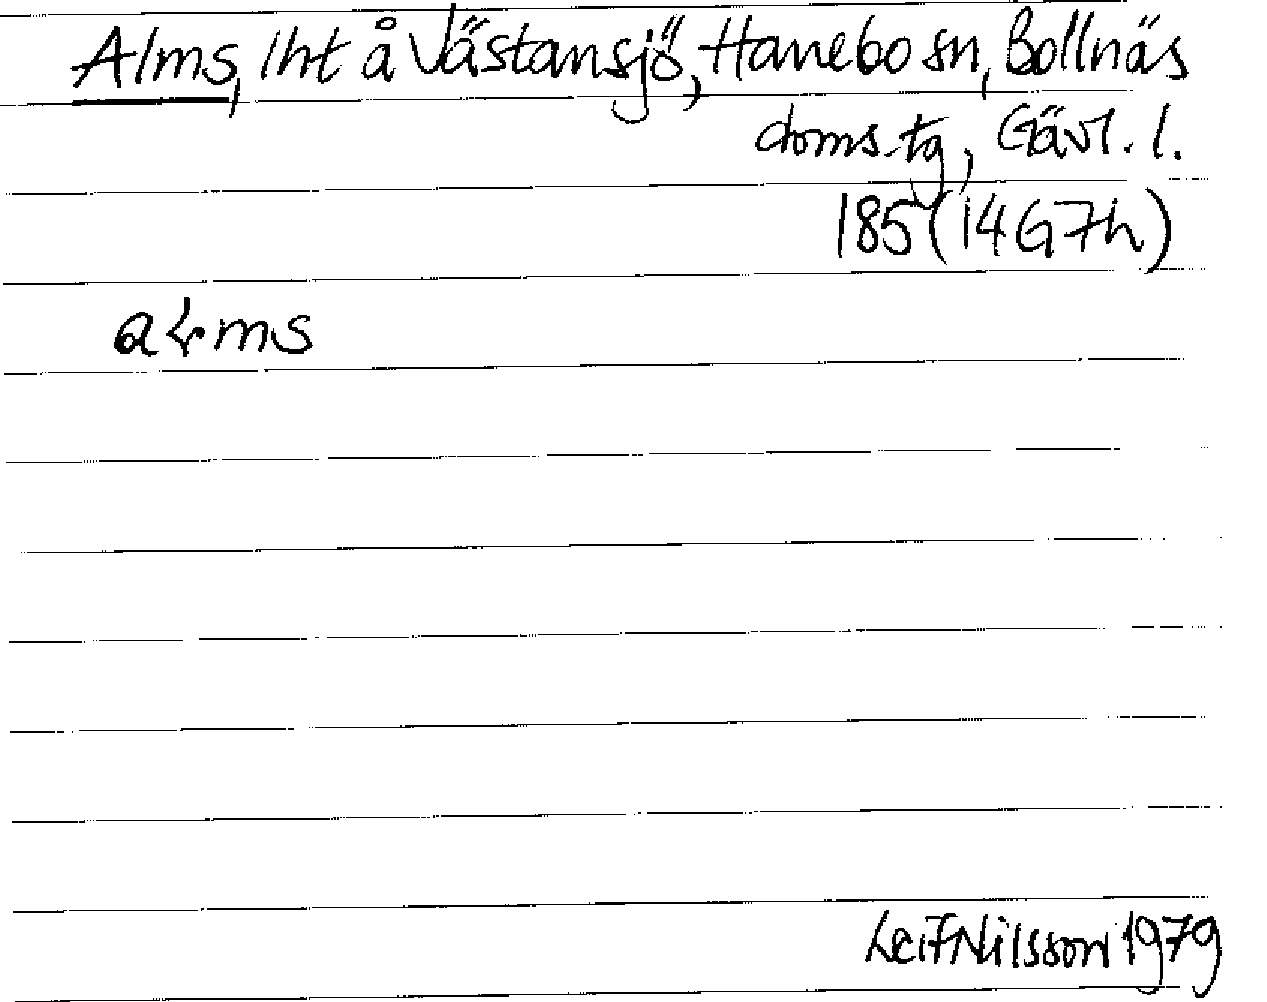 Alms, lht å Västansjö, Hanebo sn, Bollnäs
doms.tg, Gävl. l.
185 (14G7h)
Leif Nilsson 1979